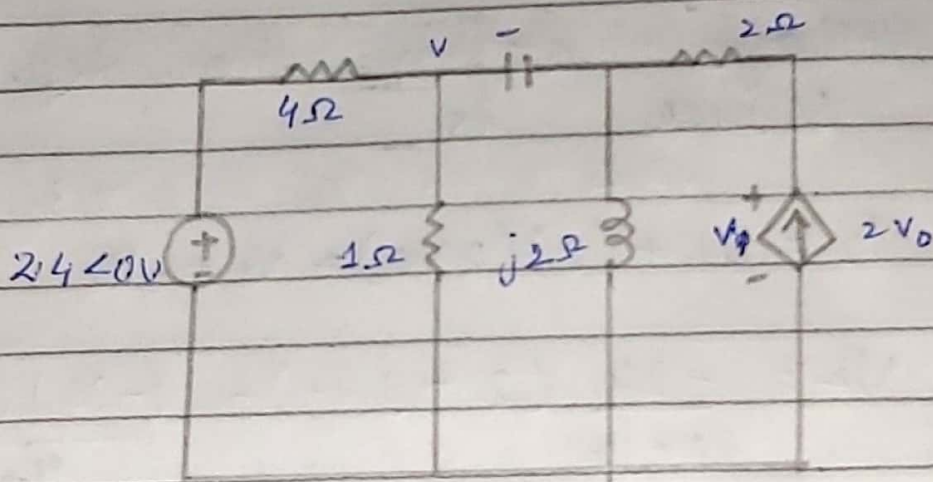 V - 2Ω
4Ω
+
24<0V + 1Ω j2Ω Vφ 2V0
- -